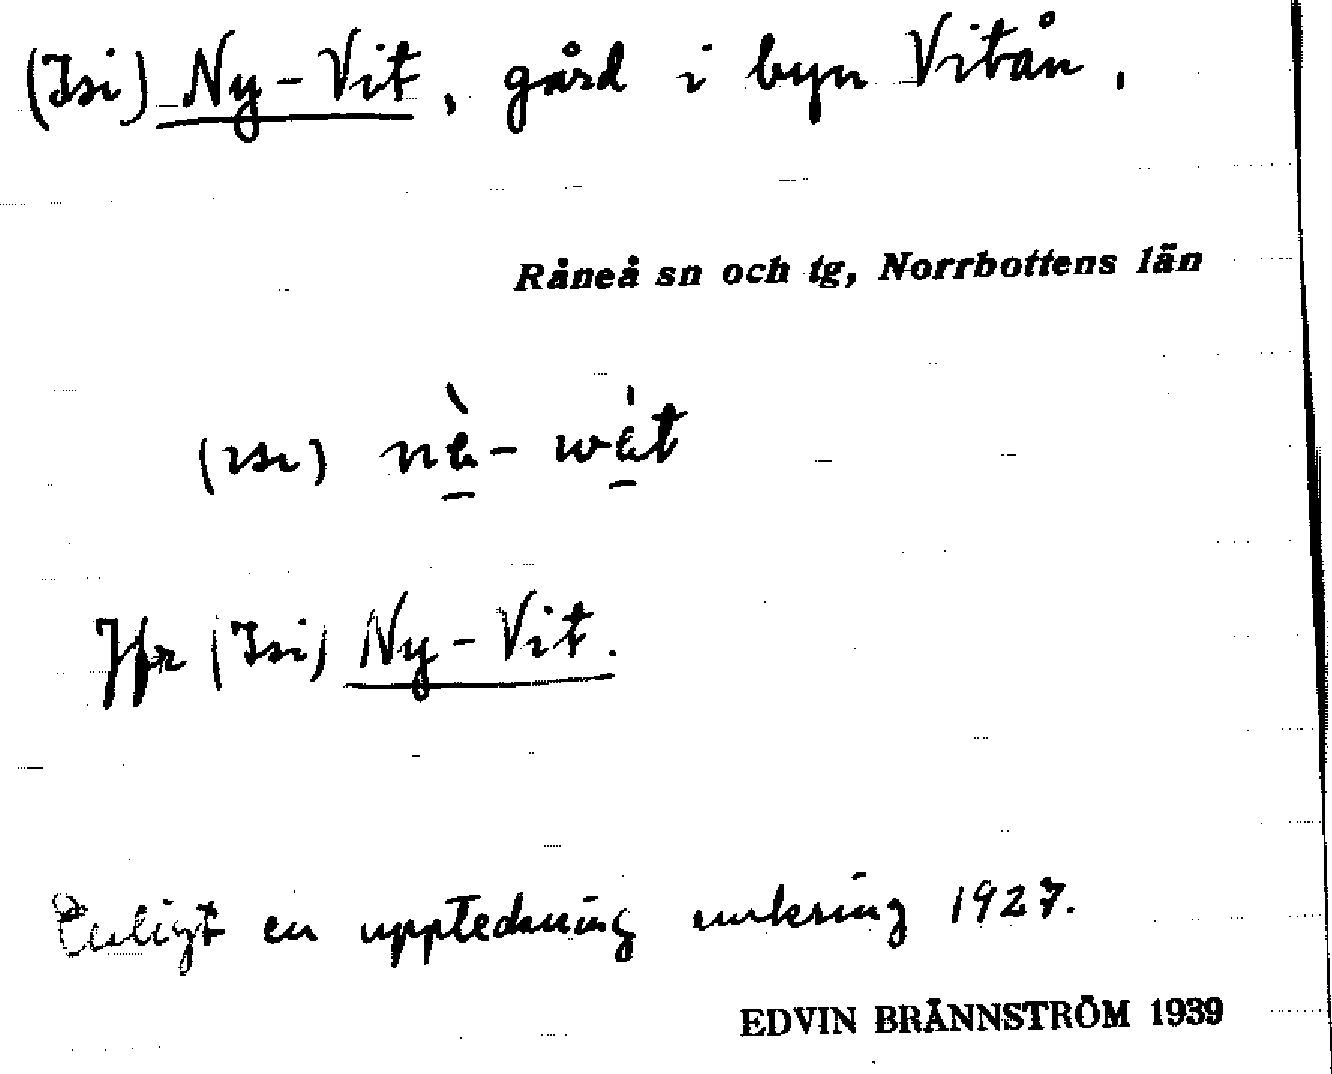 (Isi) Ny-Vit, gård i byn Vitån.
Råneå sn och tg, Norrbottens län
(ısı) nè̱-wé̱t
Jfr (Isi) Ny-Vit.
Enligt en uppteckning omkring 1927.
EDVIN BRÄNNSTRÖM 1939